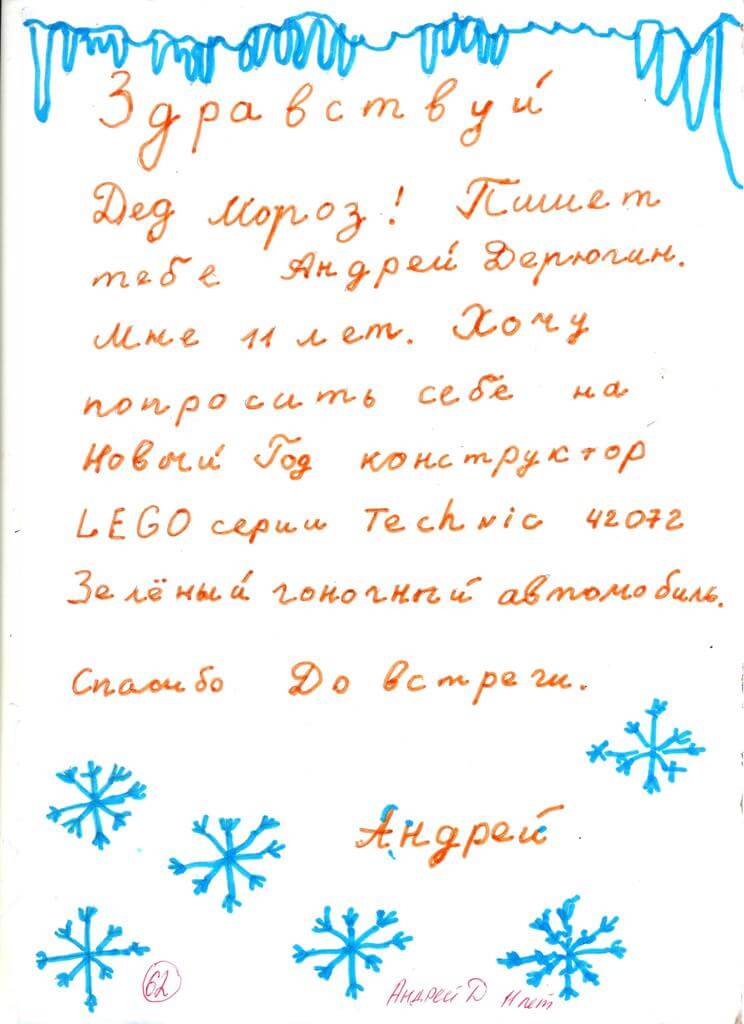 Здравствуй
Дед Мороз! Пишет
тебе Андрей Дерюгин.
Мне 11 лет. Хочу
попросить себе на
Новый Год конструктор
LEGO серии Technic 42072
Зелёный гоночный автомобиль.
Спасибо До встречи.
Андрей
62
Андрей Д 11 лет